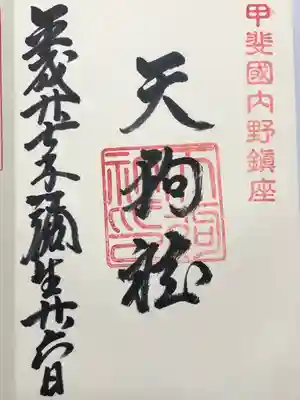 甲斐國内野鎮座
天狗社
平成廿七年彌生廿六日